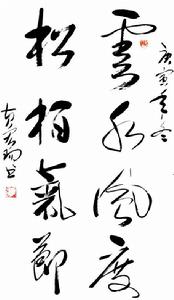 庚寅年冬
雲水風度
松柏氣節